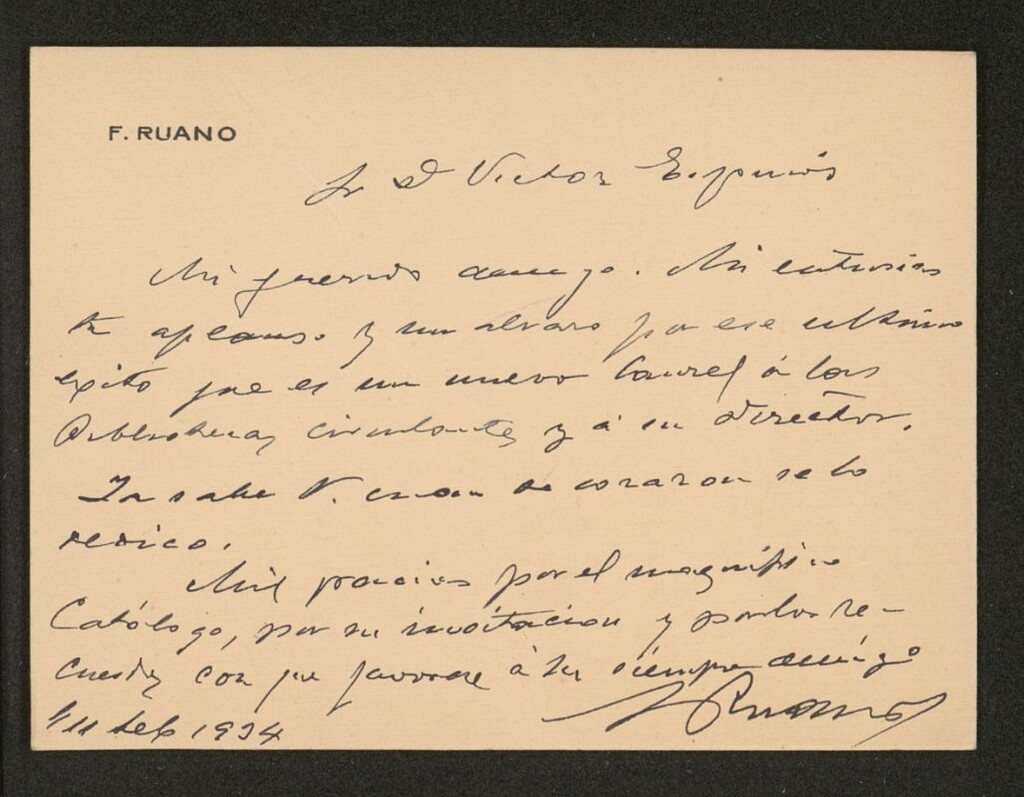 F. RUANO
Sr D Victor Espinós
Mi querido amigo. Mi entusias
ta aplauso y un abrazo por ese ultimo
exito que es un nuevo laurel á las
Bibliotecas circulantes y á su Director.
Ya sabe V. cuan de corazon se lo
dedico.
Mil gracias por el magnífico
Católogo, por su invitacion y por los re-
cuerdos con que favorece á su siempre amigo
F Ruano
11 Feb 1934